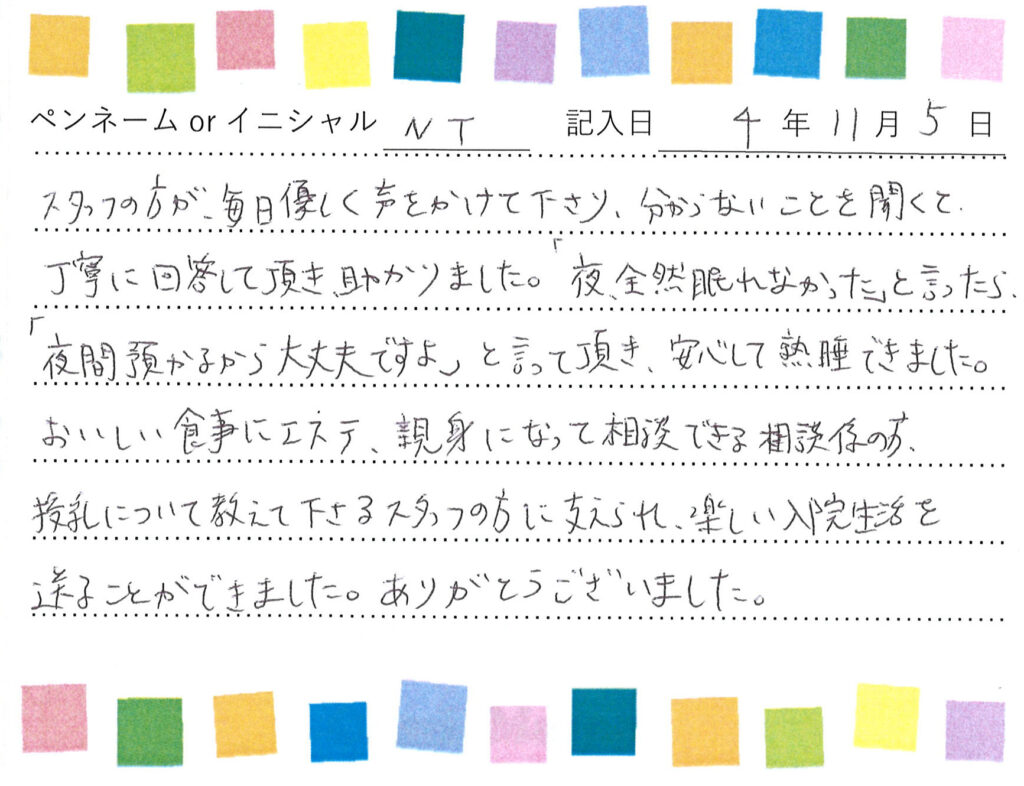 ペンネーム or イニシャル NT 記入日 4年11月5日
スタッフの方が、毎日優しく声をかけて下さり、分からないことを聞くと
丁寧に回答して頂き、助かりました。「夜、全然眠れなかった」と言ったら、
「夜間預かるから大丈夫ですよ」と言って頂き、安心して熟睡できました。
おいしい食事にエステ、親身になって相談できる相談係の方、
授乳について教えて下さるスタッフの方に支えられ、楽しい入院生活を
送ることができました。ありがとうございました。